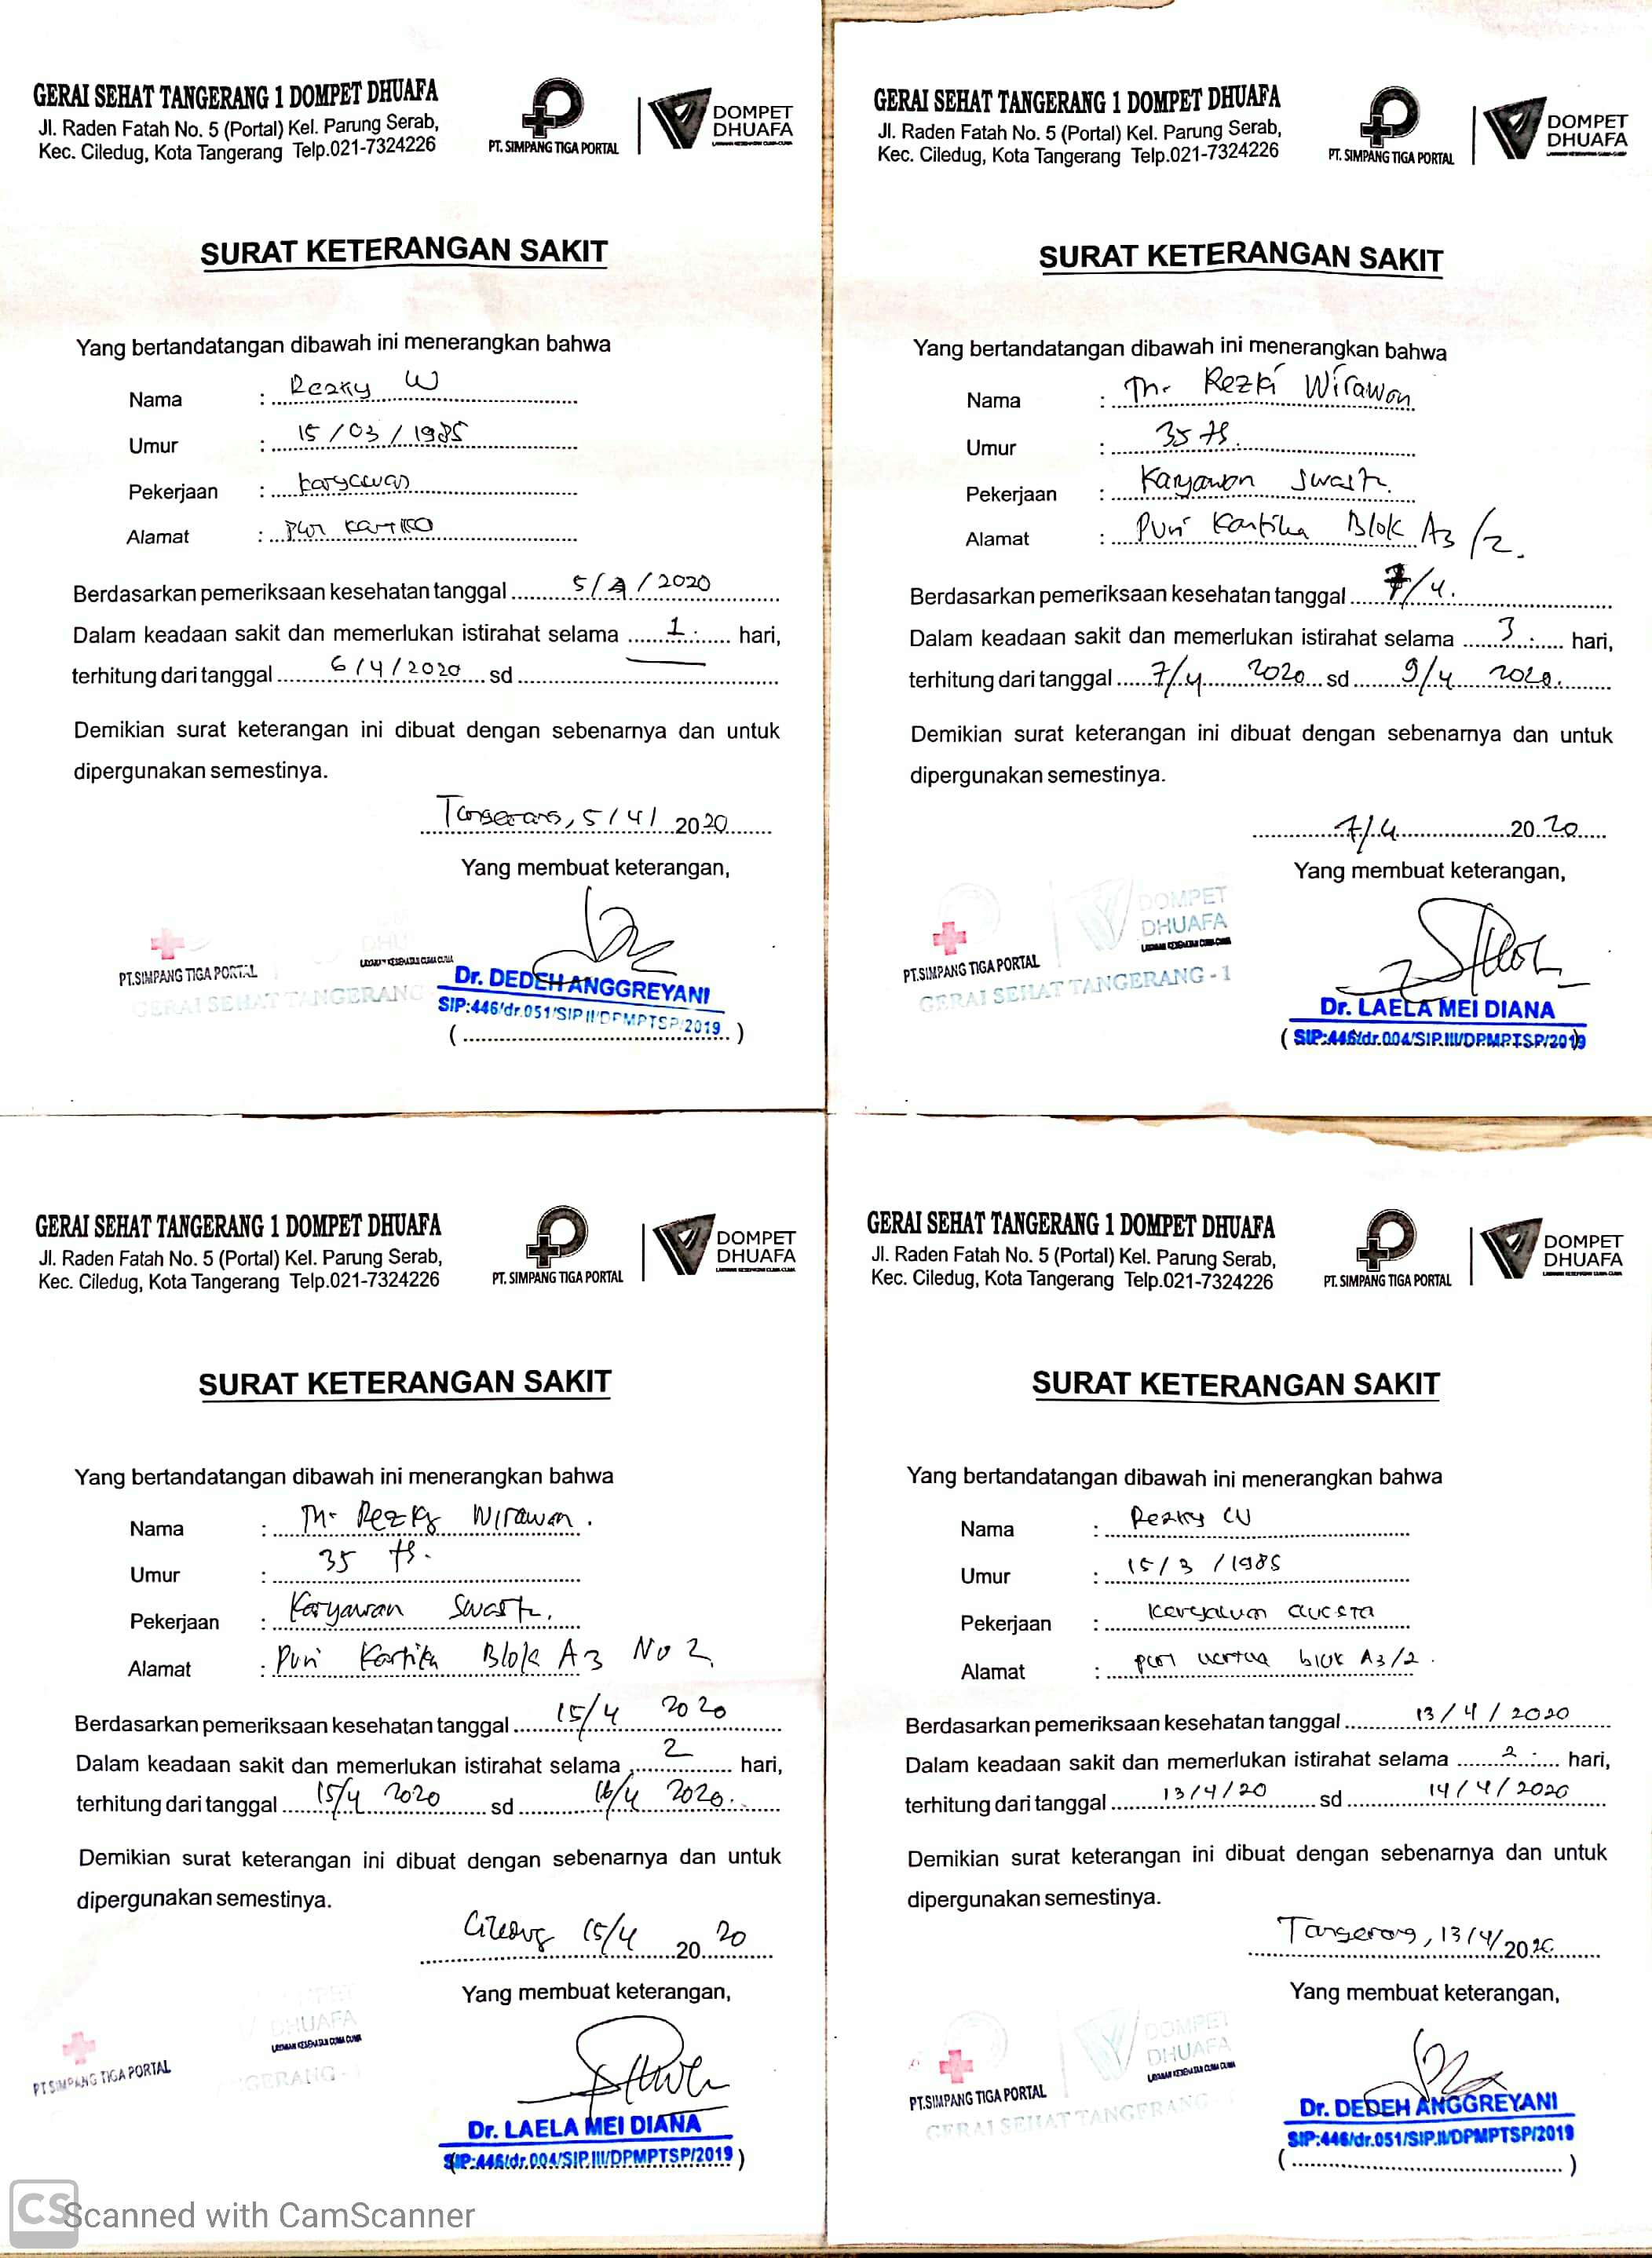 GERAI SEHAT TANGERANG 1 DOMPET DHUAFA
Jl. Raden Fatah No. 5 (Portal) Kel. Parung Serab,
Kec. Ciledug, Kota Tangerang Telp.021-7324226
PT. SIMPANG TIGA PORTAL
DOMPET
DHUAFA
SURAT KETERANGAN SAKIT
Yang bertandatangan dibawah ini menerangkan bahwa
Nama : Rezky W
Umur : 15/03/1985
Pekerjaan : karyawan
Alamat : Puri Kartika
Berdasarkan pemeriksaan kesehatan tanggal 5/4/2020
Dalam keadaan sakit dan memerlukan istirahat selama 1 hari,
terhitung dari tanggal 6/4/2020 sd
Demikian surat keterangan ini dibuat dengan sebenarnya dan untuk
dipergunakan semestinya.
Tangerang, 5/4/2020
Yang membuat keterangan,
PT.SIMPANG TIGA PORTAL
GERAI SEHAT TANGERANG
Dr. DEDEH ANGGREYANI
SIP:446/dr.051/SIP.II/DPMPTSP/2019
GERAI SEHAT TANGERANG 1 DOMPET DHUAFA
Jl. Raden Fatah No. 5 (Portal) Kel. Parung Serab,
Kec. Ciledug, Kota Tangerang Telp.021-7324226
PT. SIMPANG TIGA PORTAL
DOMPET
DHUAFA
SURAT KETERANGAN SAKIT
Yang bertandatangan dibawah ini menerangkan bahwa
Nama : Tn. Rezki Wirawan
Umur : 35 th.
Pekerjaan : Karyawan Swasta.
Alamat : Puri Kartika Blok A3/2.
Berdasarkan pemeriksaan kesehatan tanggal 7/4.
Dalam keadaan sakit dan memerlukan istirahat selama 3 hari,
terhitung dari tanggal 7/4 2020 sd 9/4 2020.
Demikian surat keterangan ini dibuat dengan sebenarnya dan untuk
dipergunakan semestinya.
7/4 2020
Yang membuat keterangan,
DOMPET
DHUAFA
LAYANAN KESEHATAN CUMA-CUMA
PT.SIMPANG TIGA PORTAL
GERAI SEHAT TANGERANG - 1
Dr. LAELA MEI DIANA
(SIP:446/dr.004/SIP.III/DPMPTSP/2019)
GERAI SEHAT TANGERANG 1 DOMPET DHUAFA
Jl. Raden Fatah No. 5 (Portal) Kel. Parung Serab,
Kec. Ciledug, Kota Tangerang Telp.021-7324226
PT. SIMPANG TIGA PORTAL
DOMPET
DHUAFA
SURAT KETERANGAN SAKIT
Yang bertandatangan dibawah ini menerangkan bahwa
Nama : Tn. Rezky Wirawan.
Umur : 35 th.
Pekerjaan : Karyawan Swasta.
Alamat : Puri Kartika Blok A3 No 2
Berdasarkan pemeriksaan kesehatan tanggal 15/4 2020
Dalam keadaan sakit dan memerlukan istirahat selama 2 hari,
terhitung dari tanggal 15/4 2020 sd 16/4 2020.
Demikian surat keterangan ini dibuat dengan sebenarnya dan untuk
dipergunakan semestinya.
15/4 2020
Yang membuat keterangan,
DHUAFA
LAYANAN KESEHATAN CUMA CUMA
PT SIMPANG TIGA PORTAL
Dr. LAELA MEI DIANA
(SIP:446/dr.004/SIP.III/DPMPTSP/2019)
GERAI SEHAT TANGERANG 1 DOMPET DHUAFA
Jl. Raden Fatah No. 5 (Portal) Kel. Parung Serab,
Kec. Ciledug, Kota Tangerang Telp.021-7324226
PT. SIMPANG TIGA PORTAL
DOMPET
DHUAFA
SURAT KETERANGAN SAKIT
Yang bertandatangan dibawah ini menerangkan bahwa
Nama : Rezky W
Umur : 15/3/1985
Pekerjaan :
Alamat : blok A3/2.
Berdasarkan pemeriksaan kesehatan tanggal 13/4/2020
Dalam keadaan sakit dan memerlukan istirahat selama 2 hari,
terhitung dari tanggal 13/4/20 sd 14/4/2020
Demikian surat keterangan ini dibuat dengan sebenarnya dan untuk
dipergunakan semestinya.
Tangerang, 13/4/2020
Yang membuat keterangan,
DOMPET
DHUAFA
LAYANAN KESEHATAN CUMA CUMA
PT.SIMPANG TIGA PORTAL
GERAI SEHAT TANGERANG
Dr. DEDEH ANGGREYANI
SIP:446/dr.051/SIP.II/DPMPTSP/2019
CS Scanned with CamScanner